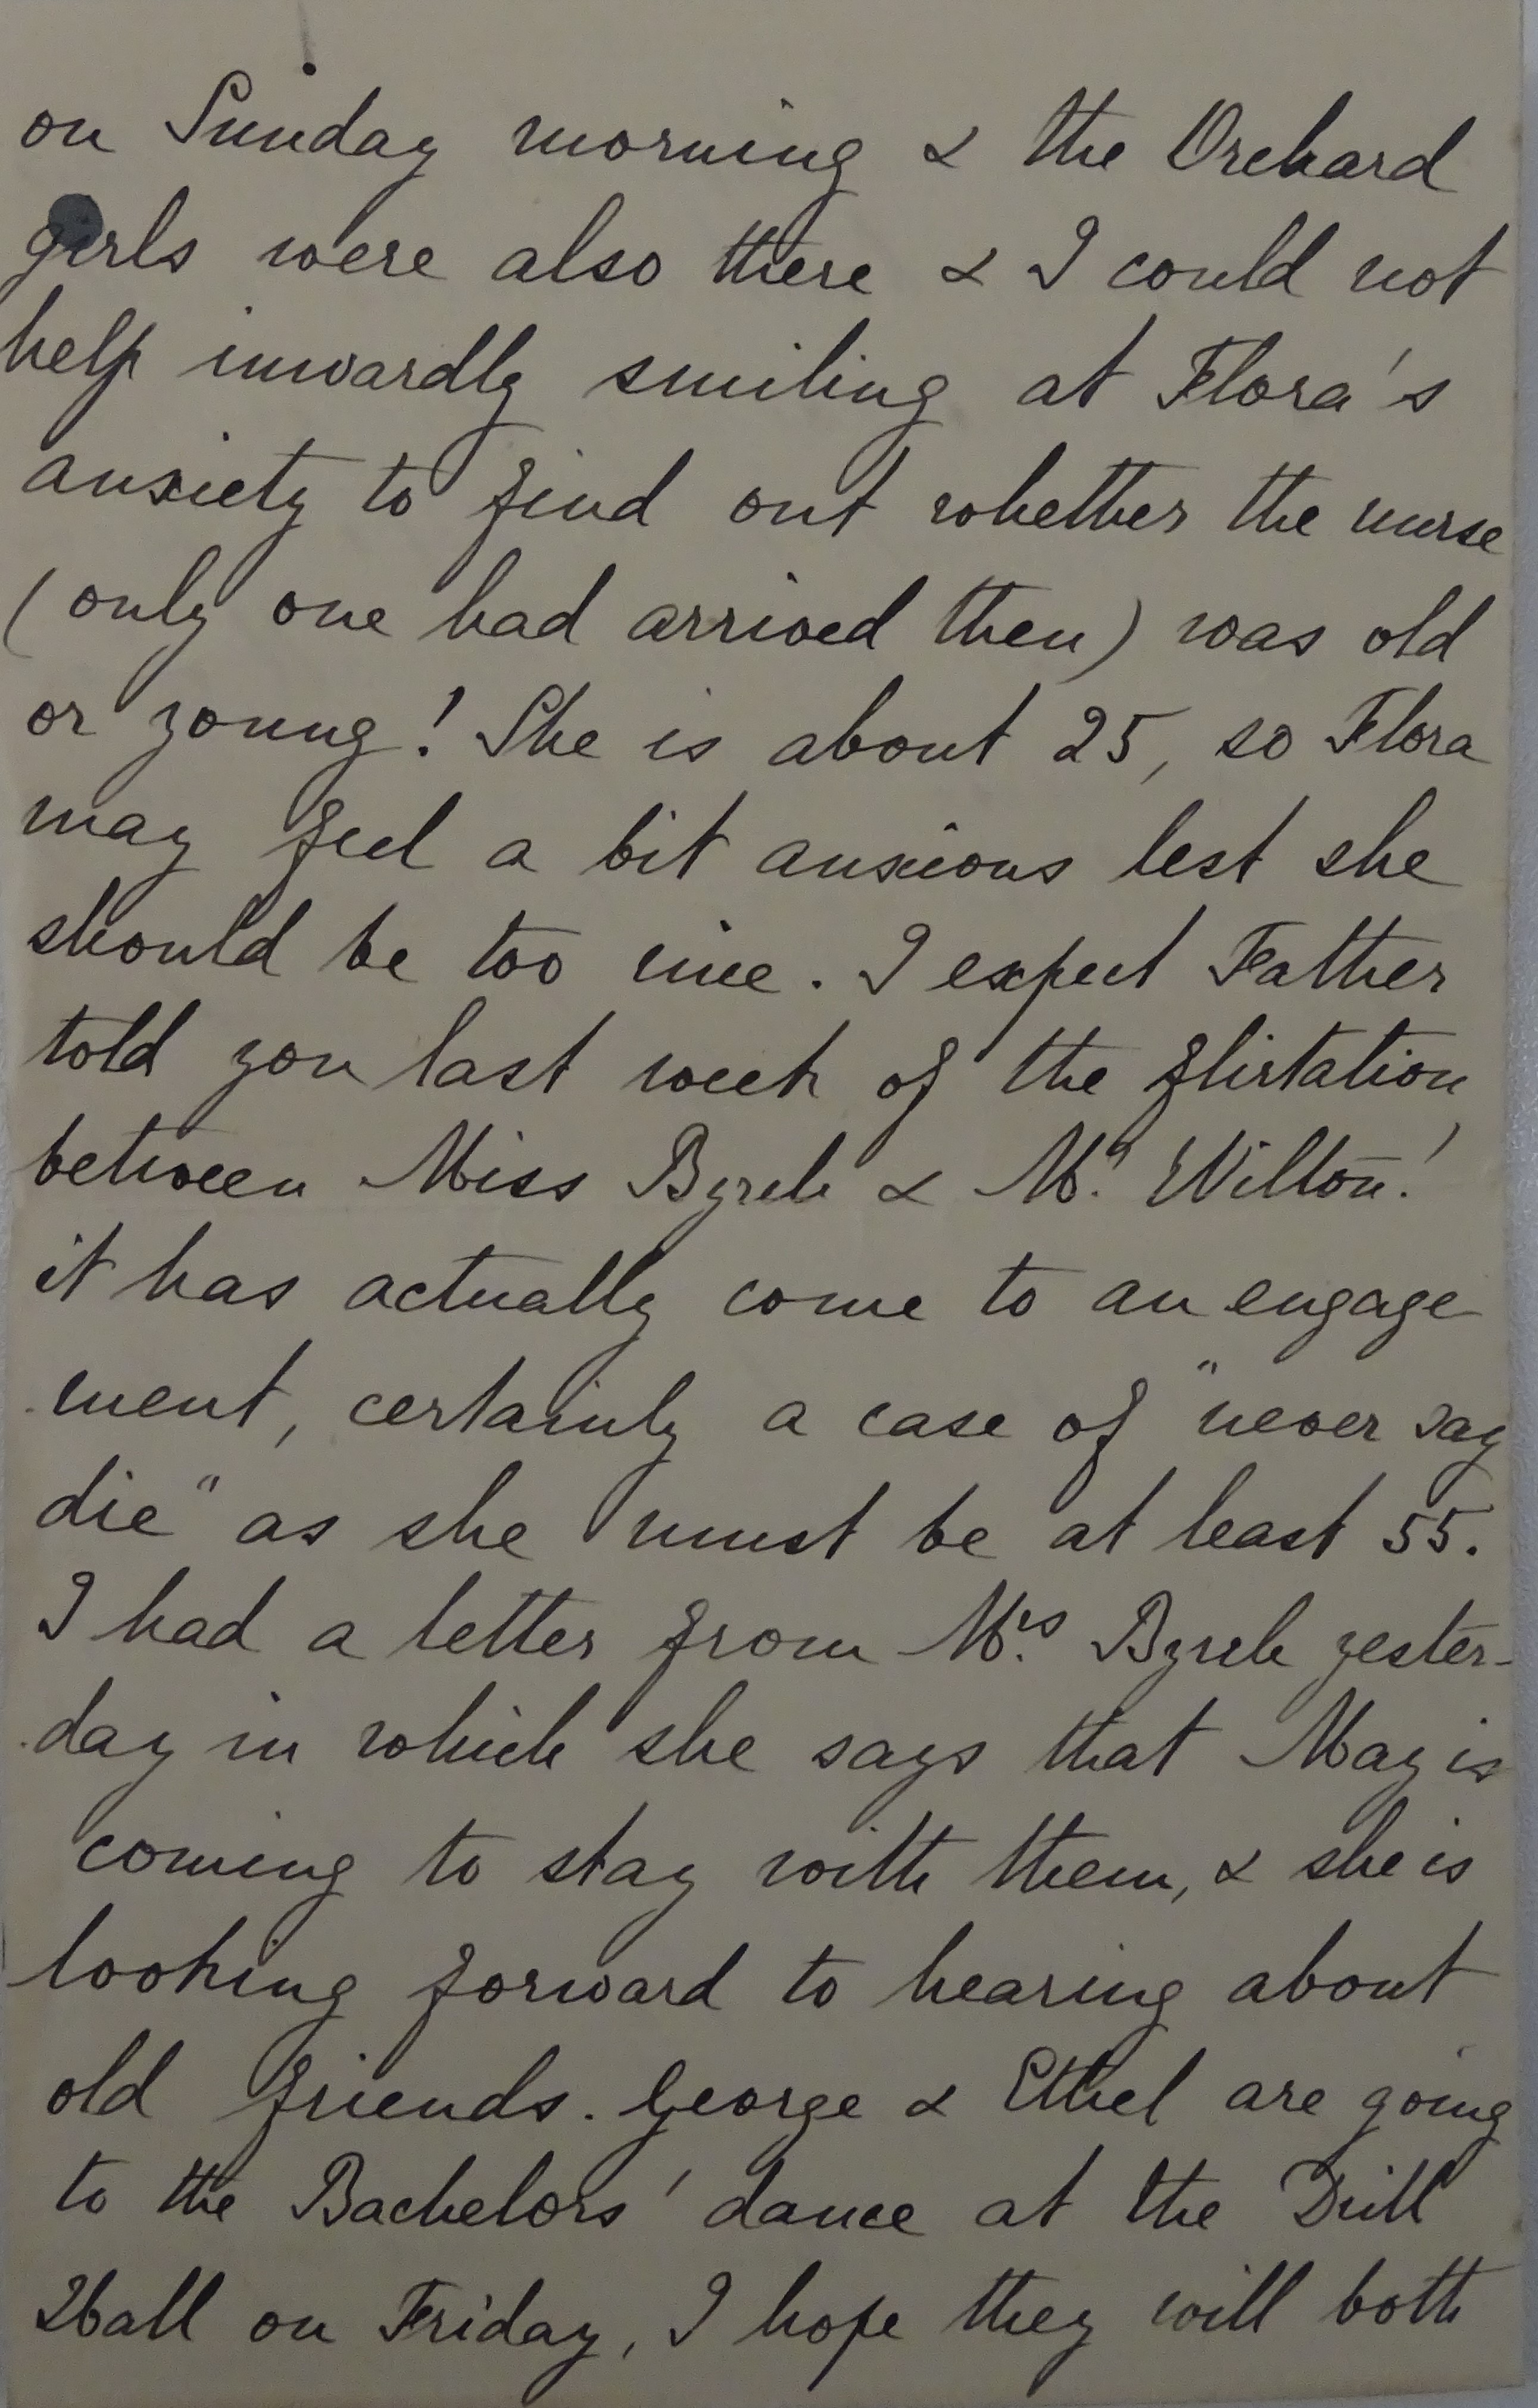 on Sunday morning & the Orchard
girls were also there & I could not
help inwardly smiling at Flora's
anxiety to find out whether the nurse
(only one had arrived then) was old
or young! She is about 25, so Flora
may feel a bit anxious lest she
should be too nice. I expect Father
told you last week of the flirtation
between Miss Byrch & Mr. Wilton!
it has actually come to an engage
ment, certainly a case of "never say
die" as she must be at least 55.
I had a letter from Mrs. Byrch yester-
day in which she says that May is
coming to stay with them, & she is
looking forward to hearing about
old friends. George & Ethel are going
to the Bachelors' dance at the Drill
Hall on Friday, I hope they will both